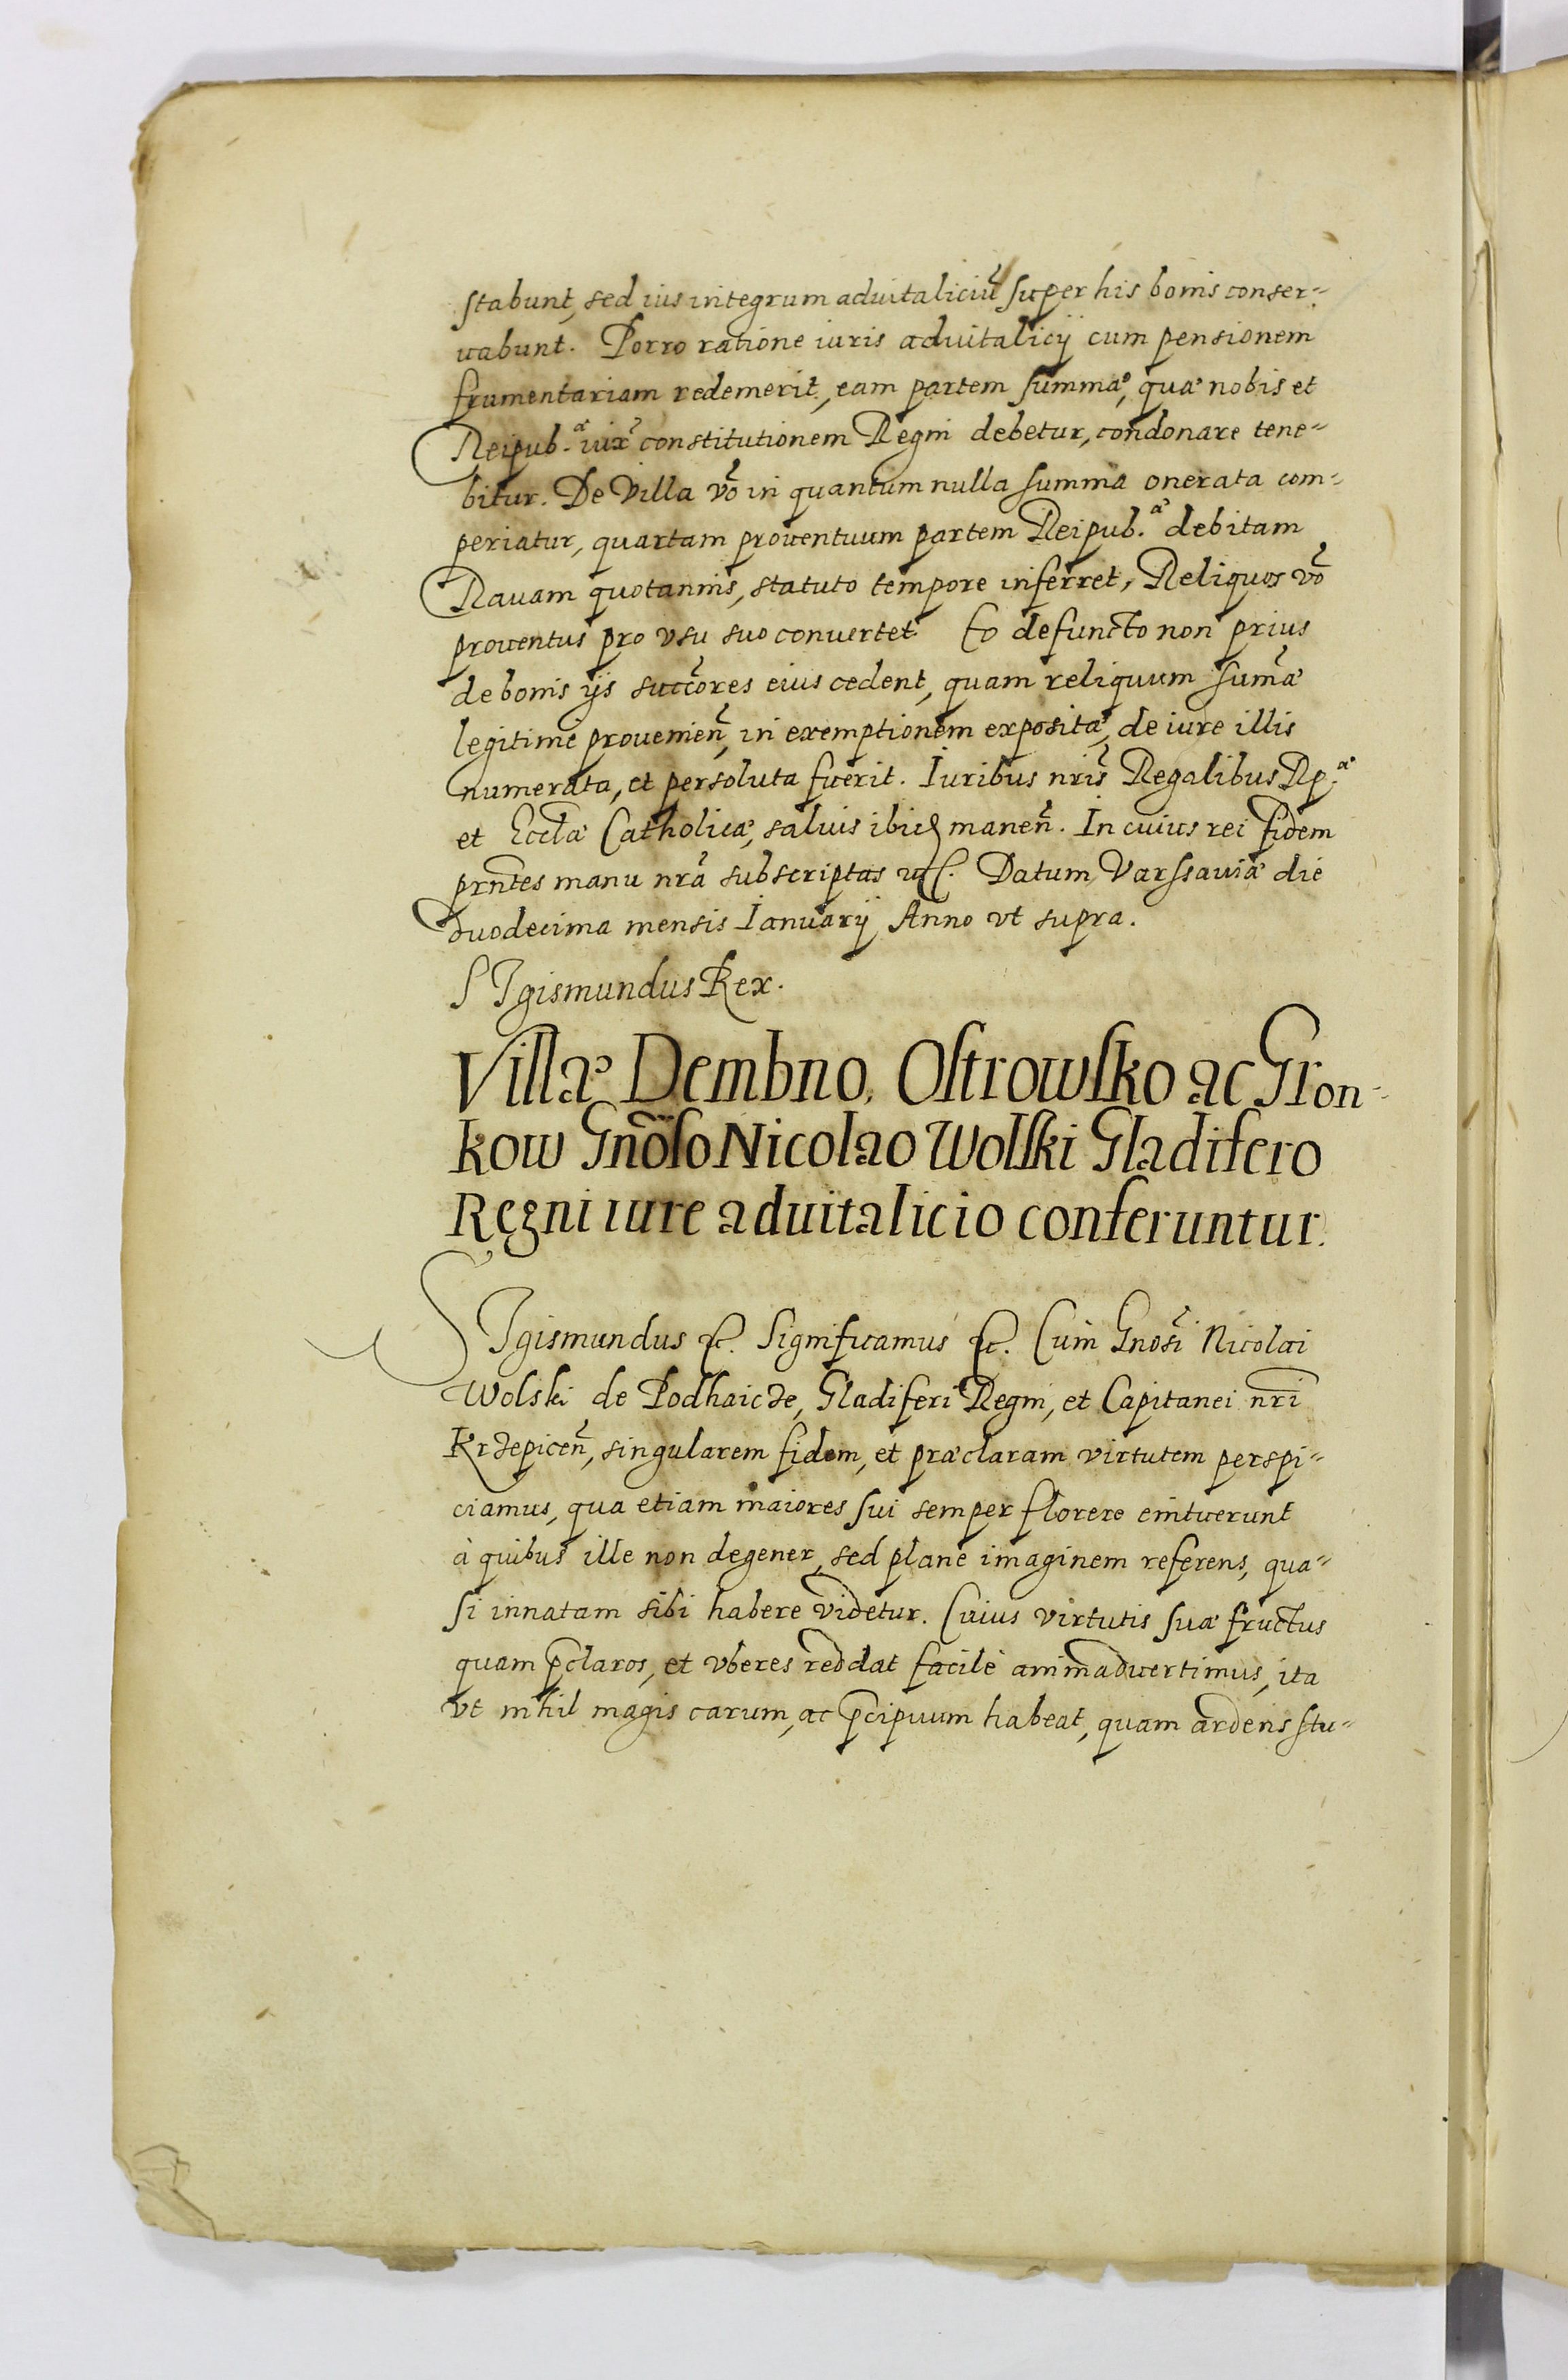 stabunt, sed ius integrum aduitaliciũ super his bonis conser-
uabunt. Porro ratione iuris aduitalicij cum pensionem
frumentariam redemerit, eam partem summæ, quæ nobis et
Reipub.æ iux̃ constitutionem Regni debetur, condonare tene-
bitur. De Villa võ in quantum nulla summa onerata com-
periatur, quartam prouentuum partem Reipub.æ debitam
Rauam quotannis, statuto tempore inferret, Reliquos võ
prouentus pro vsu suo conuertet Eo defuncto non prius
de bonis ijs succõres eius cedent, quam reliquum sum̃æ
legitime prouenieñ, in exemptionem expositæ, de iure illis
numerata, et persoluta fuerit. Iuribus nrĩs Regalibus Rp.æ
et Eccl̃æ Catholicæ, saluis ibid. maneñ. In cuius rei fidem
prñtes manu nrã subscriptas etc. Datum Varssauiæ die
duodecima mensis Ianuarij Anno vt supra.
SIgismundus Rex.
Villæ Dembno, Ostrowsko ac Gron-
kow Gnõso Nicolao Wolski Gladifero
Regni iure aduitalicio conferuntur.
SIgismundus etc. Significamus etc. Cum Gnosĩ Nicolai
Wolski de Podhaicze, Gladiferi Regni, et Capitanei nrĩ
Krzepiceñ, singularem fidem, et præclaram virtutem perspi-
ciamus, qua etiam maiores sui semper florere enituerunt
à quibus ille non degener, sed plane imaginem referens, qua-
si innatam sibi habere videtur. Cuius virtutis suæ fructus
quam p̃claros, et vberes reddat facilè animaduertimus, ita
vt nihil magis carum, ac p̃cipuum habeat, quam ardens stu-